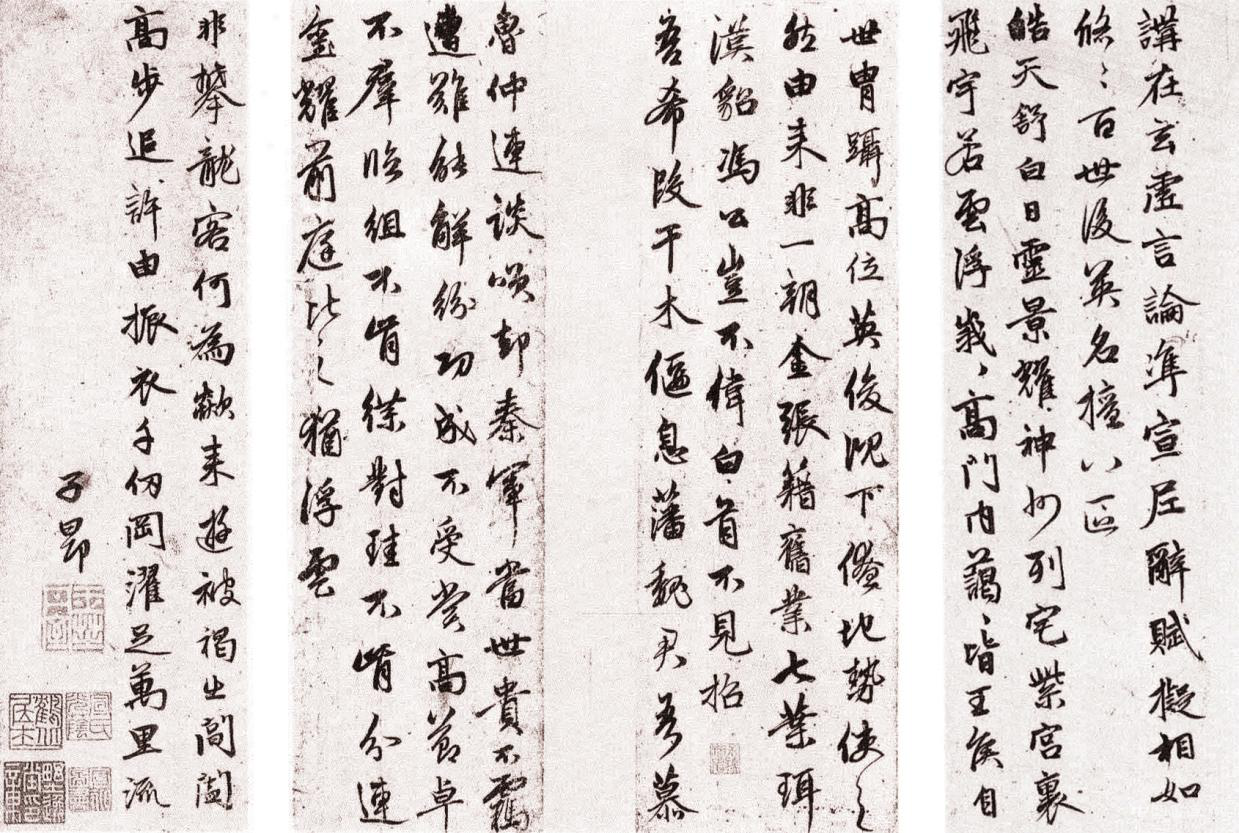 講在玄虛言論準宣尼辭賦擬相如
悠〻百世後英名擅八區
皓天舒白日靈景耀神州列宅紫宮裏
飛宇若雲浮峩〻高門内藹〻皆王侯自
世胄躡高位英俊沉下僚地勢使之
然由来非一朝金張籍舊業七葉珥
漢貂馮公豈不偉白首不見招
吾希段干木偃息藩魏君吾慕
魯仲連談咲却秦軍當世貴不羈
遭難能解紛功成不受賞高節卓
不羣臨組不肯緤對珪不肯分連
金耀前庭比之猶浮雲
非攀龍客何為歘来遊被褐出閶闔
高步追許由振衣千仞岡濯足萬里流
子昂